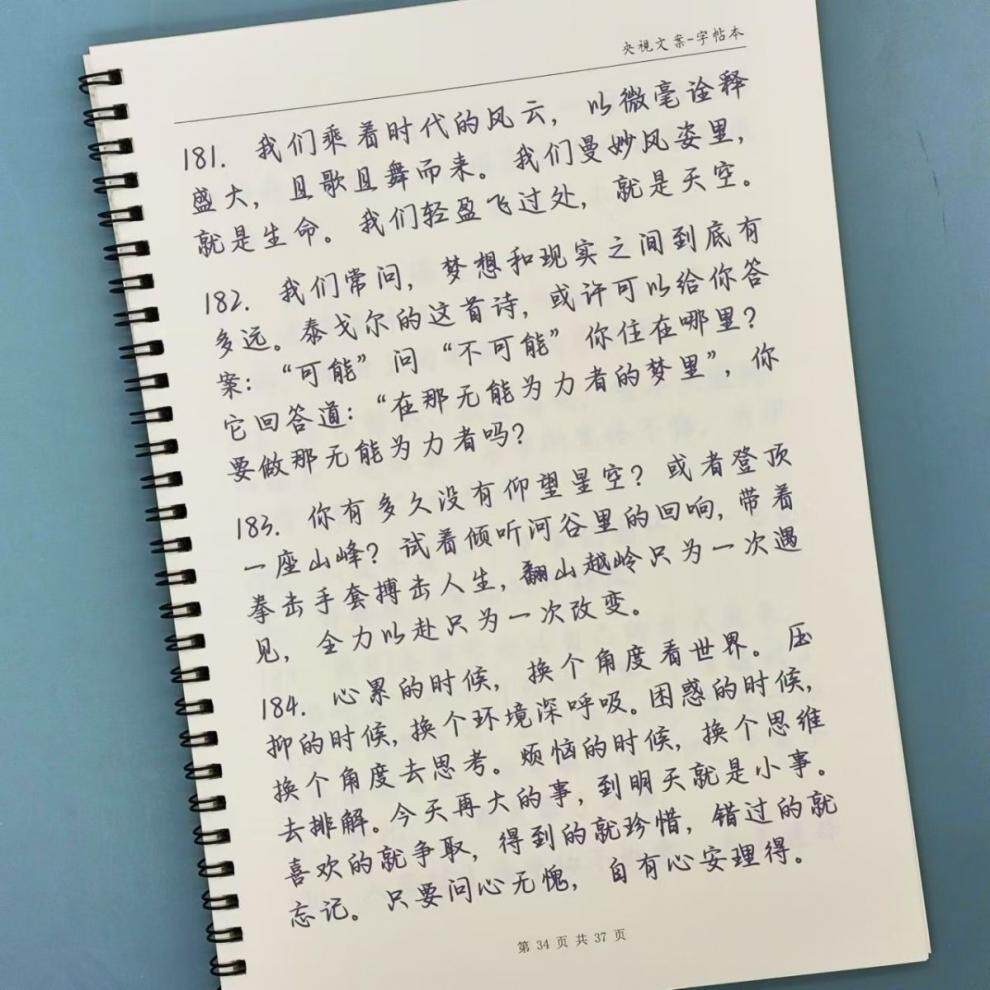 央视文案-字帖本
181. 我们乘着时代的风云，以微毫诠释
盛大，且歌且舞而来。我们曼妙风姿里，
就是生命。我们轻盈飞过处，就是天空。
182. 我们常问，梦想和现实之间到底有
多远。泰戈尔的这首诗，或许可以给你答
案：“可能”问“不可能”你住在哪里？
它回答道：“在那无能为力者的梦里”，你
要做那无能为力者吗？
183. 你有多久没有仰望星空？或者登顶
一座山峰？试着倾听河谷里的回响，带着
拳击手套搏击人生，翻山越岭只为一次遇
见，全力以赴只为一次改变。
184. 心累的时候，换个角度看世界。压
抑的时候，换个环境深呼吸。困惑的时候，
换个角度去思考。烦恼的时候，换个思维
去排解。今天再大的事，到明天就是小事。
喜欢的就争取，得到的就珍惜，错过的就
忘记。只要问心无愧，自有心安理得。
第 34 页 共 37 页